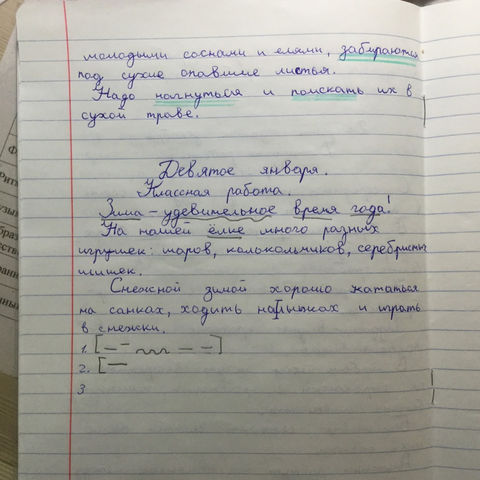 молодыми соснами и елями, забираются
под сухие опавшие листья.
Надо нагнуться и поискать их в
сухой траве.
Девятое января.
Классная работа.
Зима – удевительное время года!
На нашей ёлке много разных
игрушек: шаров, колькольчиков, серебристых
шишек.
Снежной зимой хорошо кататься
на санках, ходить на лыжах и играть
в снежки.
1.
2.
3